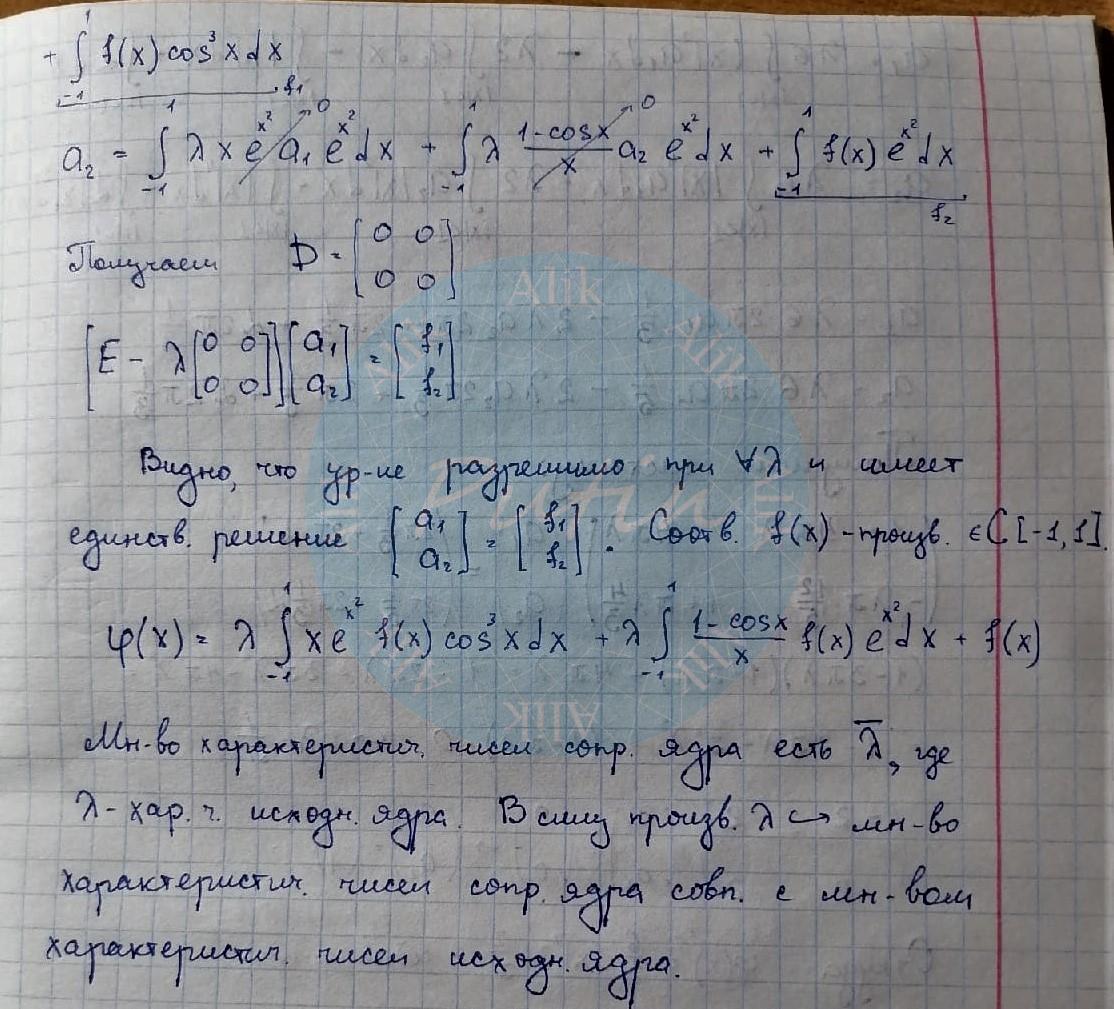 + ∫₋₁¹ f(x) cos³x dx
f₁
a₂ = ∫₋₁¹ λ x e^{x²} a₁ e^{x²} dx → 0 + ∫₋₁¹ λ (1-cosx)/x a₂ e^{x²} dx → 0 + ∫₋₁¹ f(x) e^{x²} dx
f₂
Получаем D = [0 0; 0 0]
[E - λ[0 0; 0 0]][a₁; a₂] = [f₁; f₂]
Видно, что ур-ие разрешимо при ∀λ и имеет
единств. решение [a₁; a₂] = [f₁; f₂]. Соотв. f(x) - произв. ∈ C[-1,1].
φ(x) = λ ∫₋₁¹ x e^{x²} f(x) cos³x dx + λ ∫₋₁¹ (1-cosx)/x f(x) e^{x²} dx + f(x)
Мн-во характеристич. чисел сопр. ядра есть λ̄, где
λ - хар. ч. исходн. ядра. В силу произв. λ ↪ мн-во
характеристич. чисел сопр. ядра совп. с мн-вом
характеристич. чисел исходн. ядра.
Alik
Alik
Alik
Alik
Alik
Alik
Alik
Alik
Putin